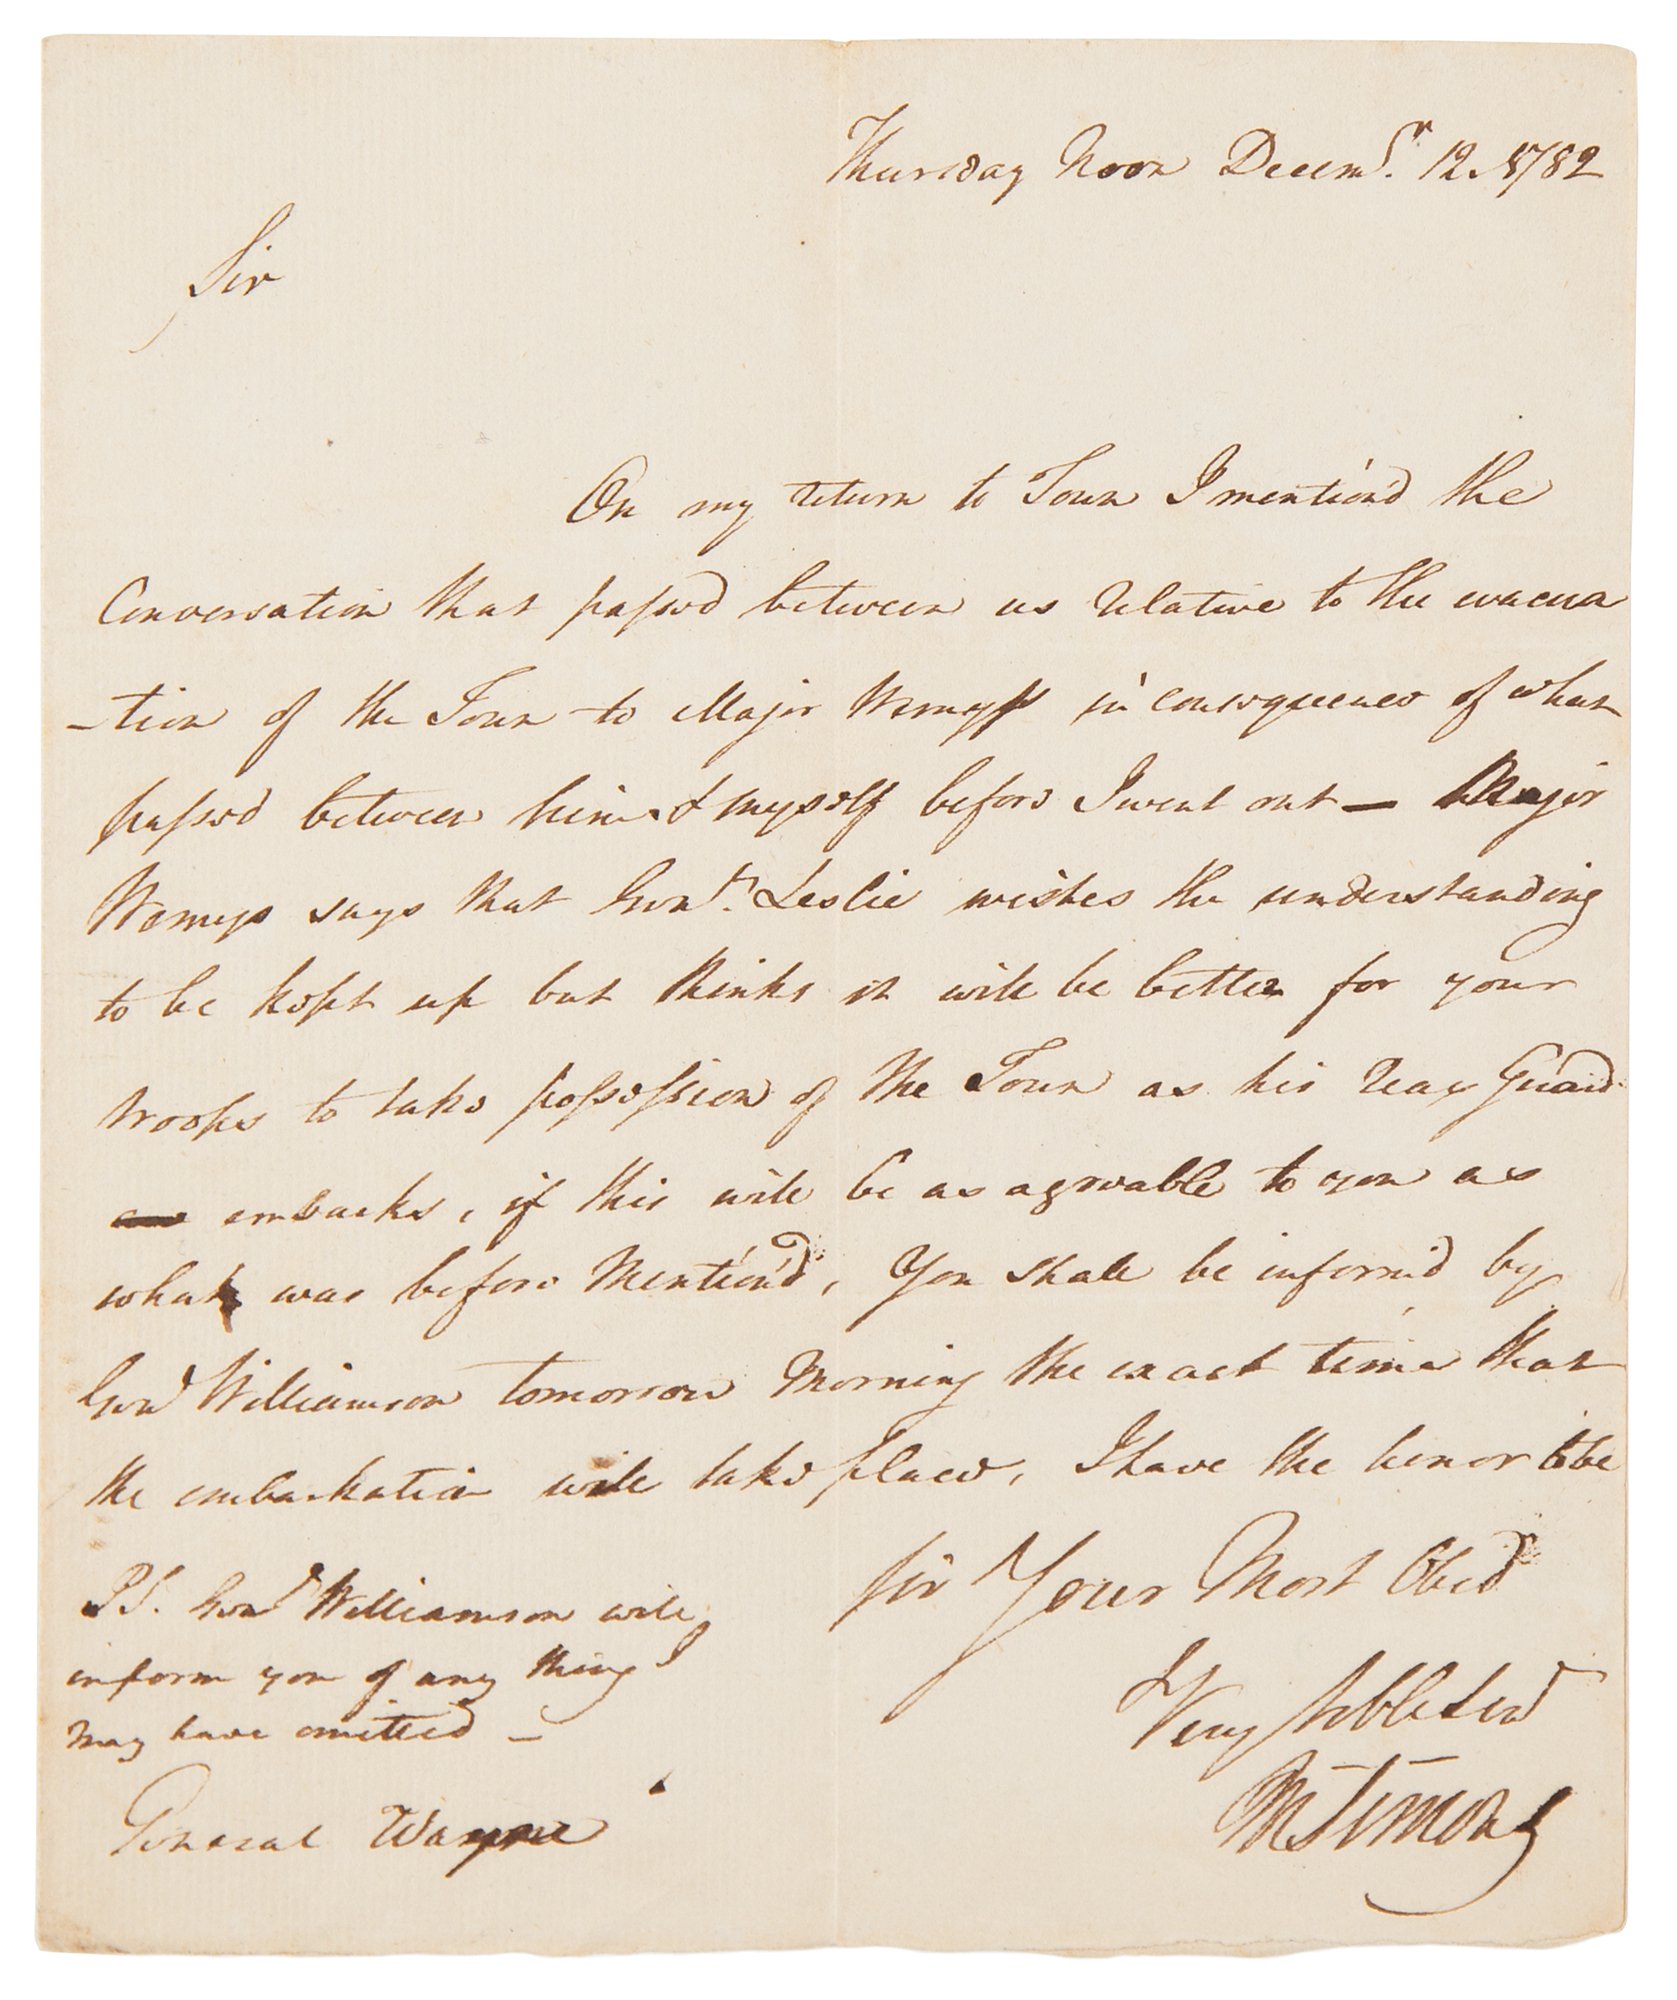 Thursday Noon Decem.r 12. 1782
Sir
On my return to Town I mention'd the
Conversation that passed between us relative to the evacua
-tion of the Town to Major Wemyss in consequence of what
passed between him & myself before I went out — Major
Wemys says that Genl. Leslie wishes the understanding
to be kept up but thinks it will be better for your
troops to take possession of the Town as his rear Guard
embarks, if this will be as agreable to you as
what was before Mention'd, You shall be inform'd by
Genl Williamson tomorrow Morning the exact time that
the embarkation will take place, I have the honor to be
Sir Your Most Obed
Very hble Serv
M Simons
P.S. Genl Williamson will
inform you of any thing I
may have omitted —
General Wayne